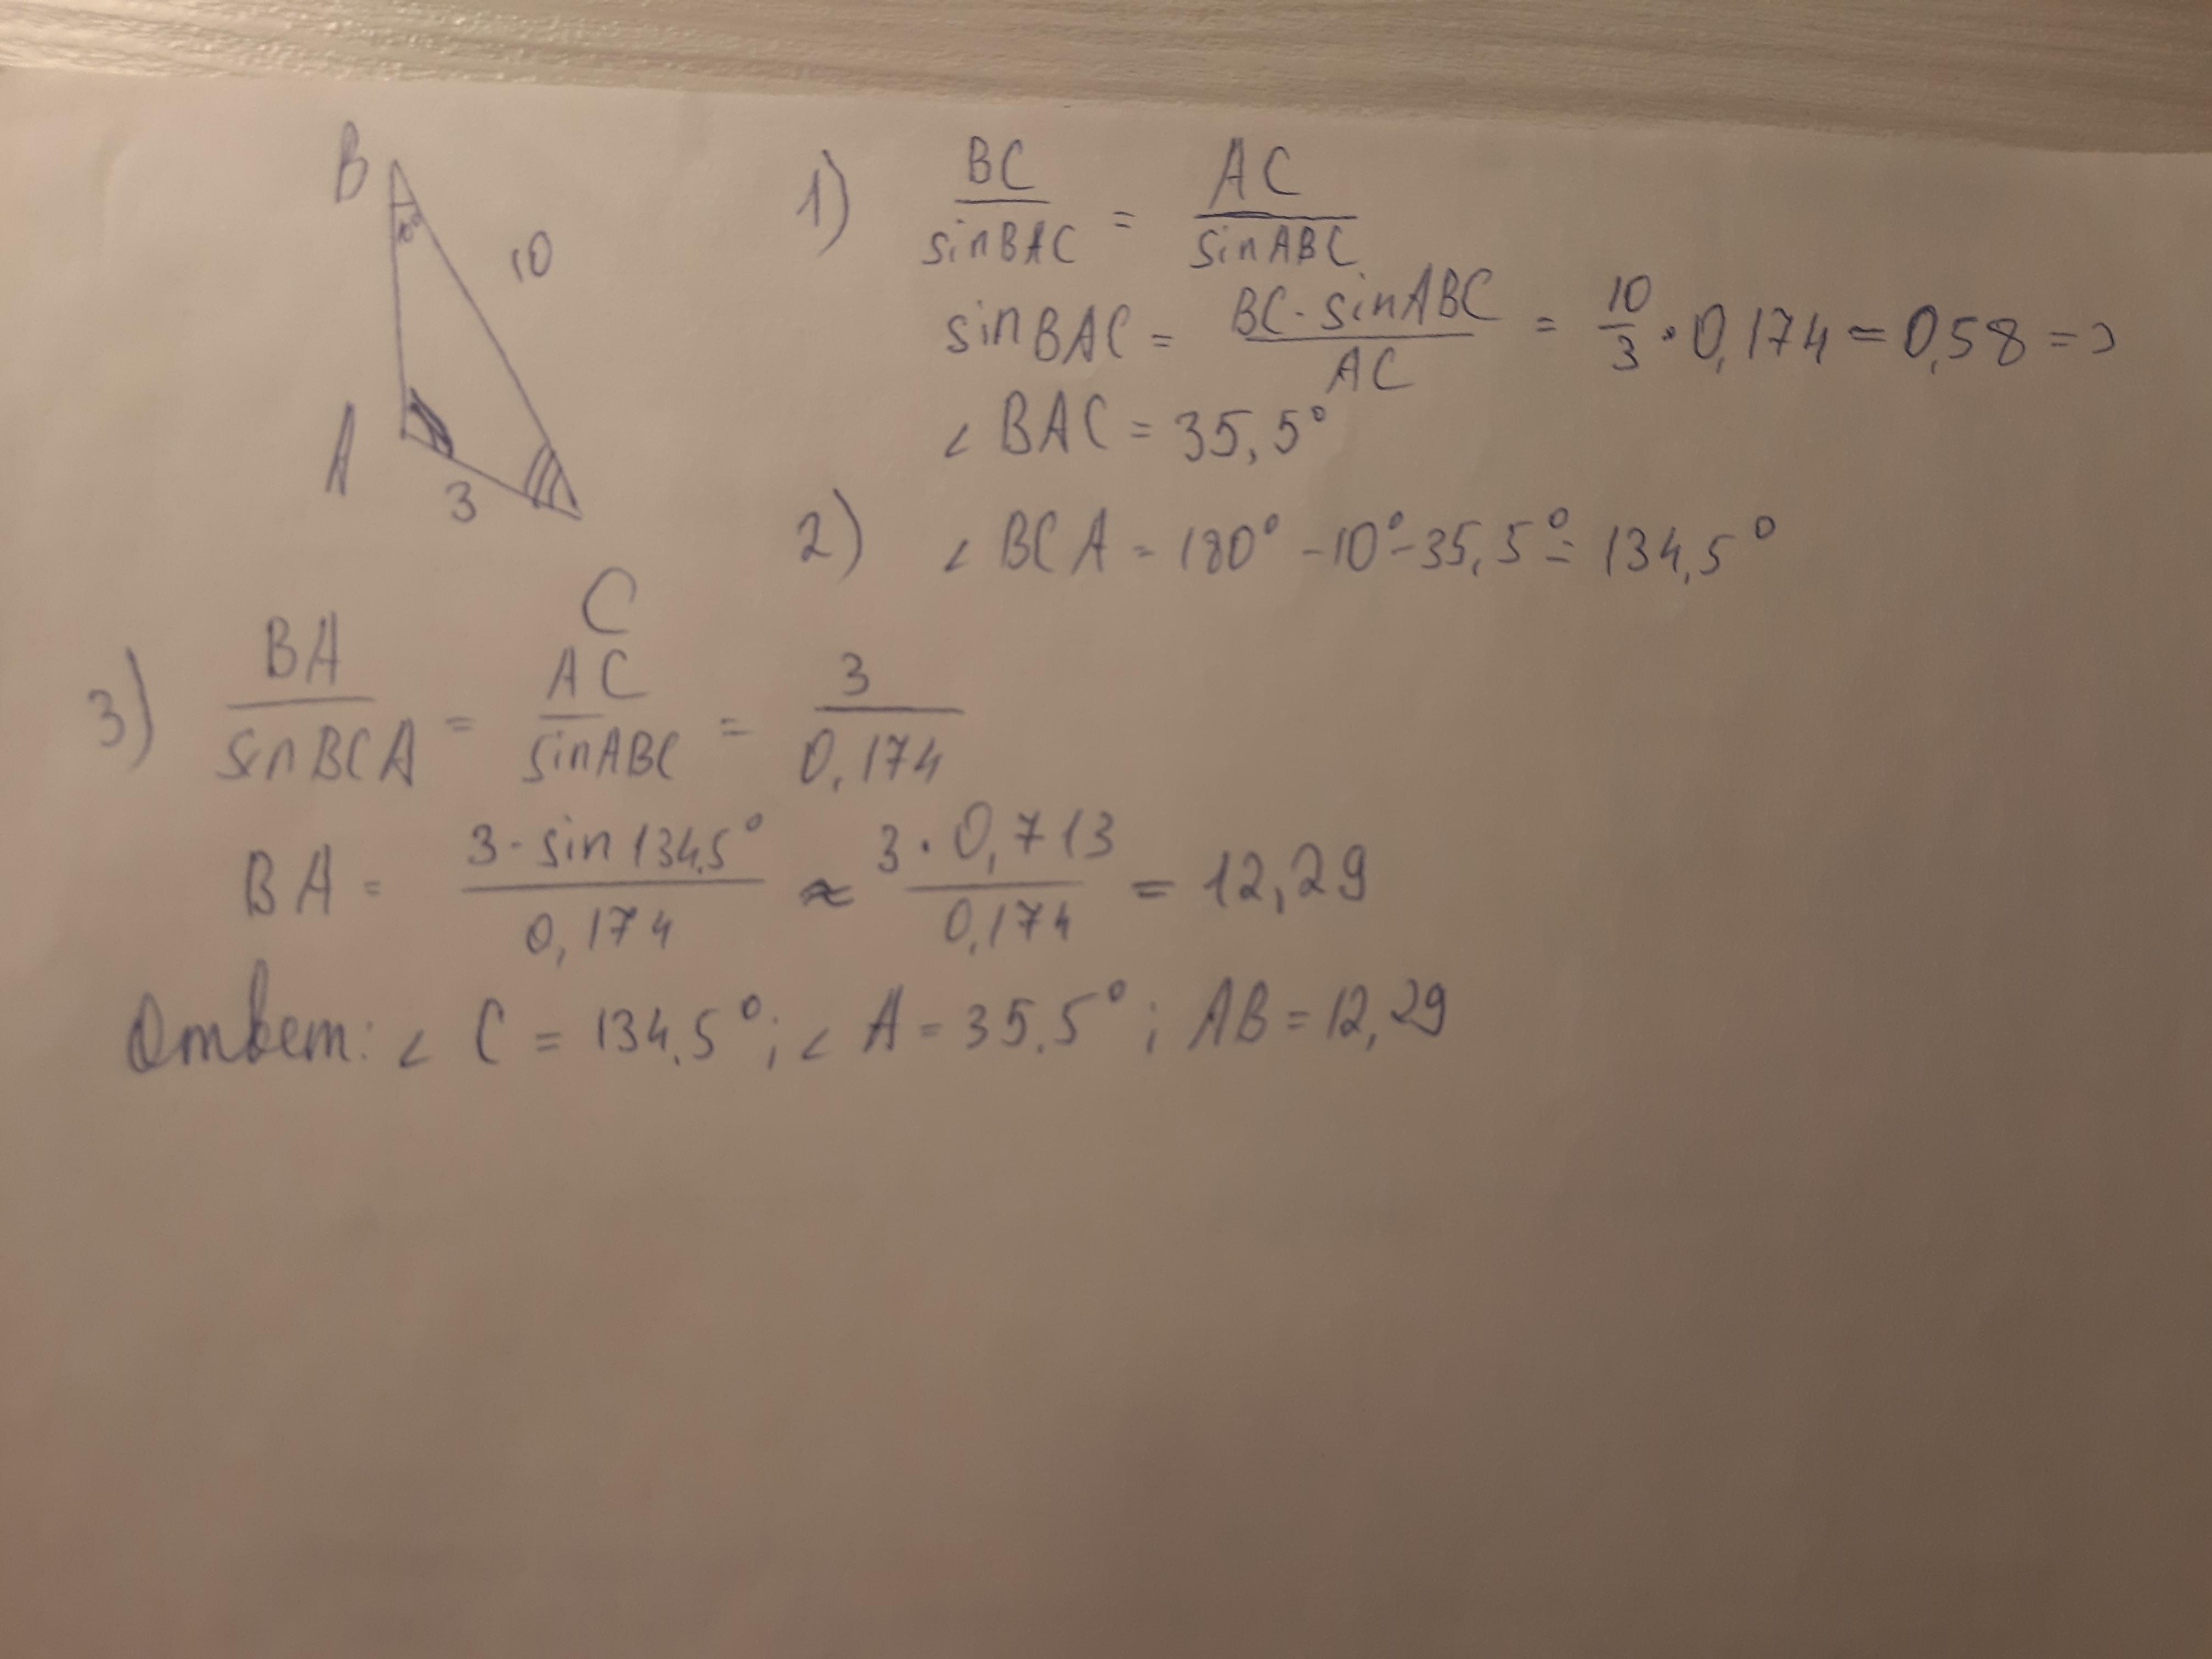 B
10°
10
A
3
C
1) BC/sinBAC = AC/sinABC
sinBAC = BC·sinABC/AC = 10/3 · 0,174 = 0,58 =>
∠BAC = 35,5°
2) ∠BCA = 180° - 10° - 35,5° = 134,5°
3) BA/sinBCA = AC/sinABC = 3/0,174
BA = 3·sin134,5°/0,174 ≈ 3·0,713/0,174 = 12,29
Ответ: ∠C = 134,5°; ∠A = 35,5°; AB = 12,29